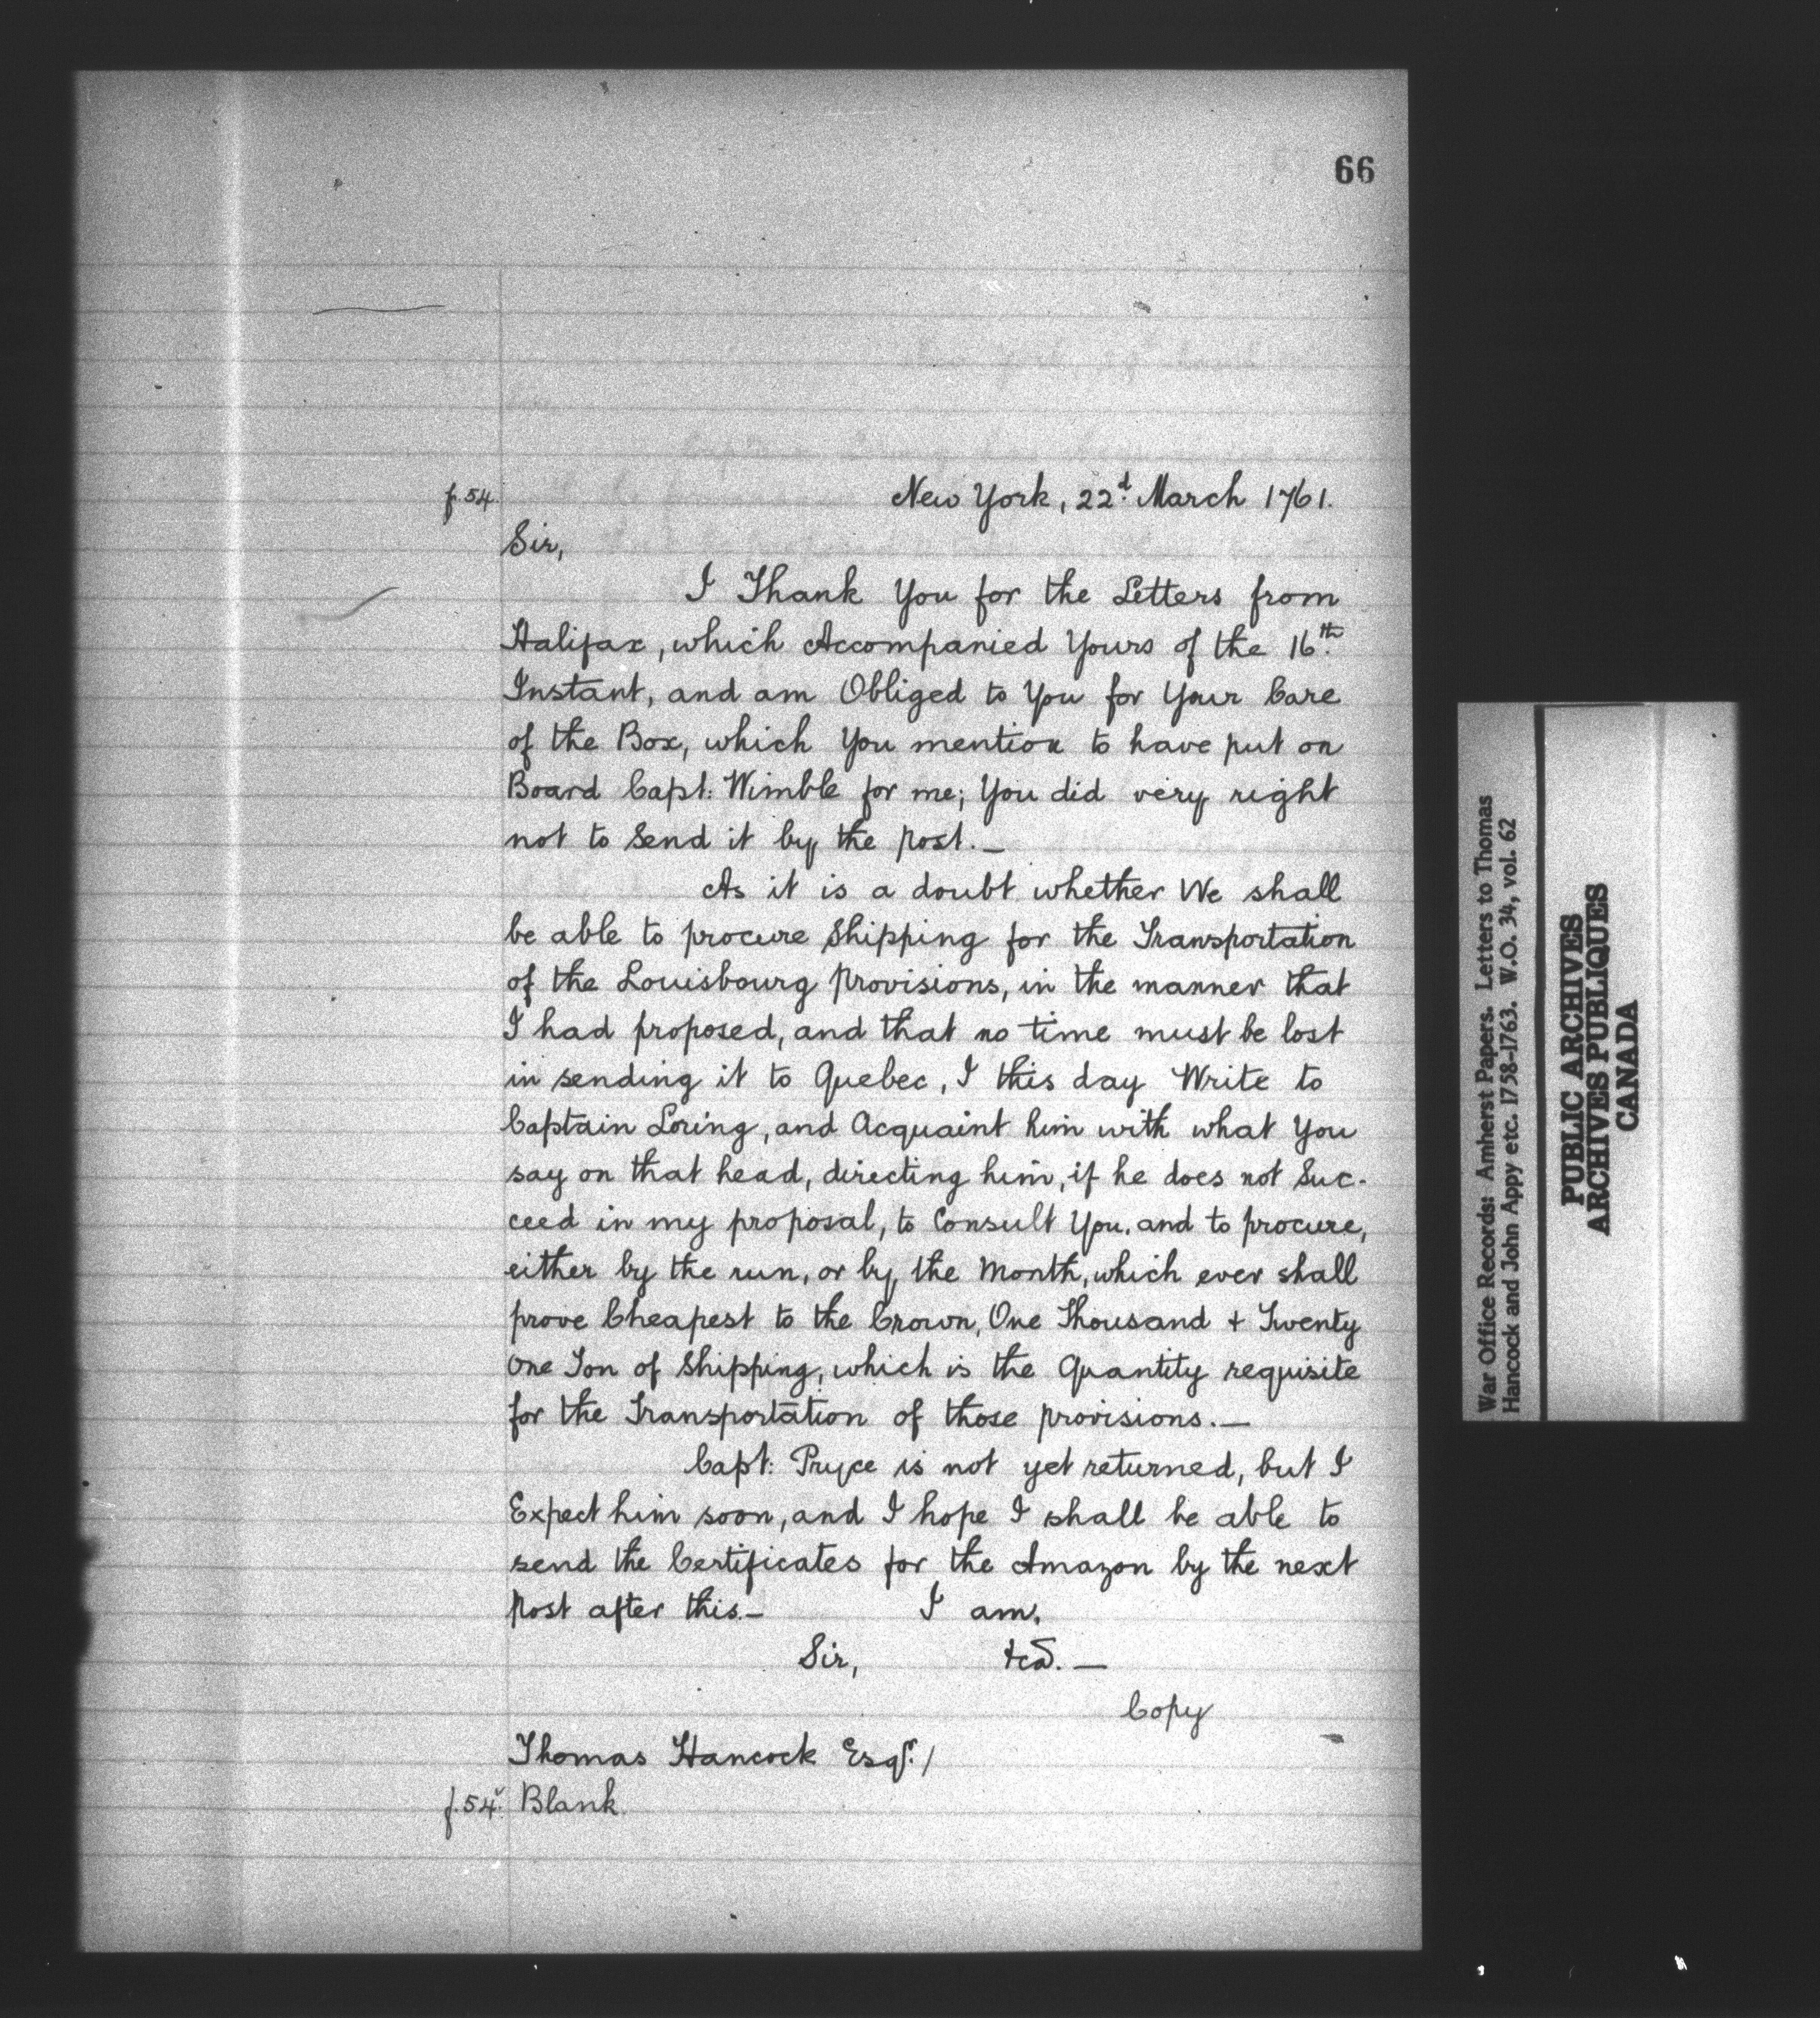 66
f.54. New York, 22d. March 1761.
Sir,
I Thank You for the Letters from
Halifax, which Accompanied Yours of the 16th.
Instant, and am Obliged to You for Your Care
of the Box, which You mention to have put on
Board Capt: Wimble for me; You did very right
not to Send it by the post.—
As it is a doubt whether We shall
be able to procure Shipping for the Transportation
of the Louisbourg Provisions, in the manner that
I had proposed, and that no time must be lost
in sending it to Quebec, I this day Write to
Captain Loring, and Acquaint him with what You
say on that head, directing him, if he does not Suc-
ceed in my proposal, to Consult You, and to procure,
either by the run, or by the Month, which ever shall
prove Cheapest to the Crown, One Thousand + Twenty
One Ton of Shipping, which is the Quantity requisite
for the Transportation of those provisions.—
Capt: Pryce is not yet returned, but I
Expect him soon, and I hope I shall be able to
send the Certificates for the Amazon by the next
Post after this.— I am,
Sir, &ca. —
Copy
Thomas Hancock Esqr. /
f.54v. Blank.
War Office Records: Amherst Papers. Letters to Thomas
Hancock and John Appy etc. 1758-1763. W.O. 34, vol. 62
PUBLIC ARCHIVES
ARCHIVES PUBLIQUES
CANADA